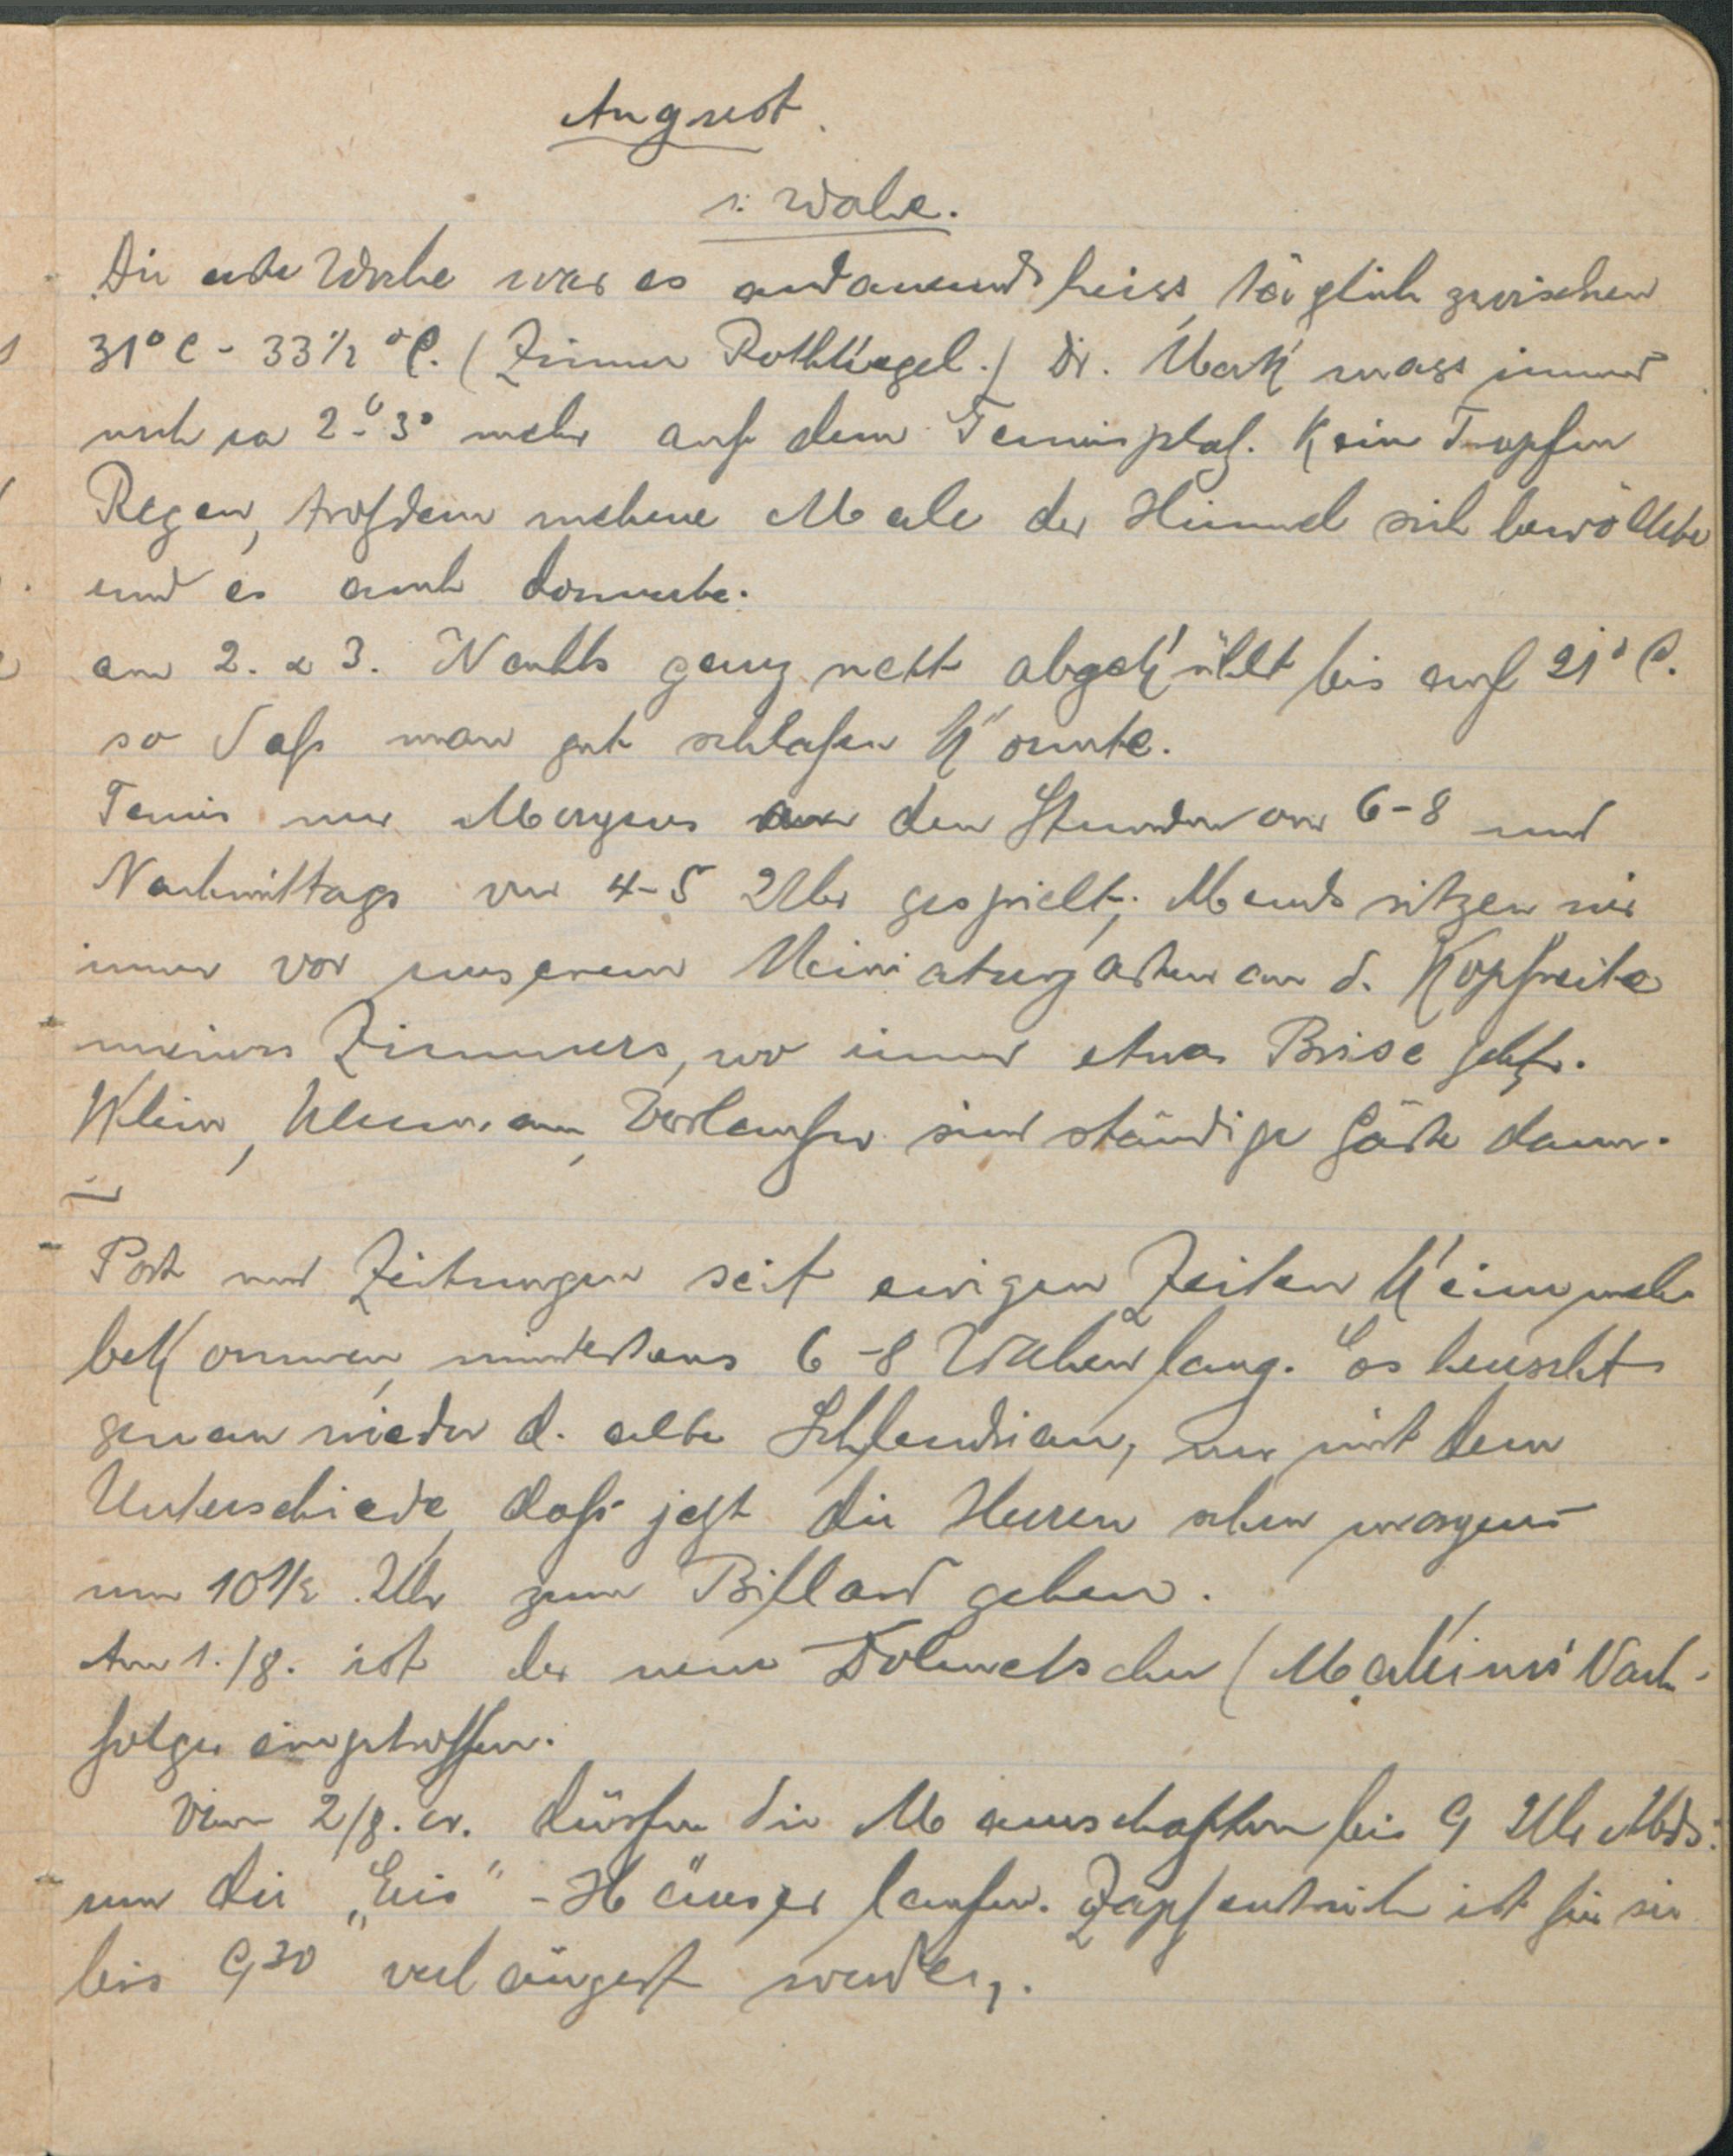 August.
1. Woche.
Die erste Woche war es andauernd heiss, täglich zwischen
31° C - 33 1/2 °C. (Zimmer Rothkegel.) Dr. Merk mass immer
noch ca 2°-3° mehr auf dem Tennisplatz. Kein Tropfen
Regen, trotzdem mehrere Male der Himmel sich bewölkte
und es auch donnerte.
am 2. & 3. Nachts ganz nett abgekühlt bis auf 21° C.
so dass man gut schlafen konnte.
Tennis nur Morgens den Stunden von 6-8 und
Nachmittags von 4-5 Uhr gespielt; Abends sitzen wir
immer vor unserem Miniaturgarten an d. Kopfseite
meines Zimmers, wo immer etwas Brise geht.
Klein, Verlaufen sind ständige Gäste dann.
Post und Zeitungen seit ewigen Zeiten keine mehr
bekommen, mindestens 6-8 Wochen lang. Es herrscht
genau wieder d. alte Schlendrian, nur mit dem
Unterschiede, dass jetzt die Herren schon morgens
um 10 1/2 Uhr zum Billard gehen.
Am 1./8. ist der neue Dolmetscher (Makinos Nach-
folger eingetroffen.
Vom 2/8. cr. dürfen die Mannschaften bis 9 Uhr Abds.
um die „Eis" - Häuser laufen. Zapfenstreich ist für sie
bis 9³⁰ verlängert worden.